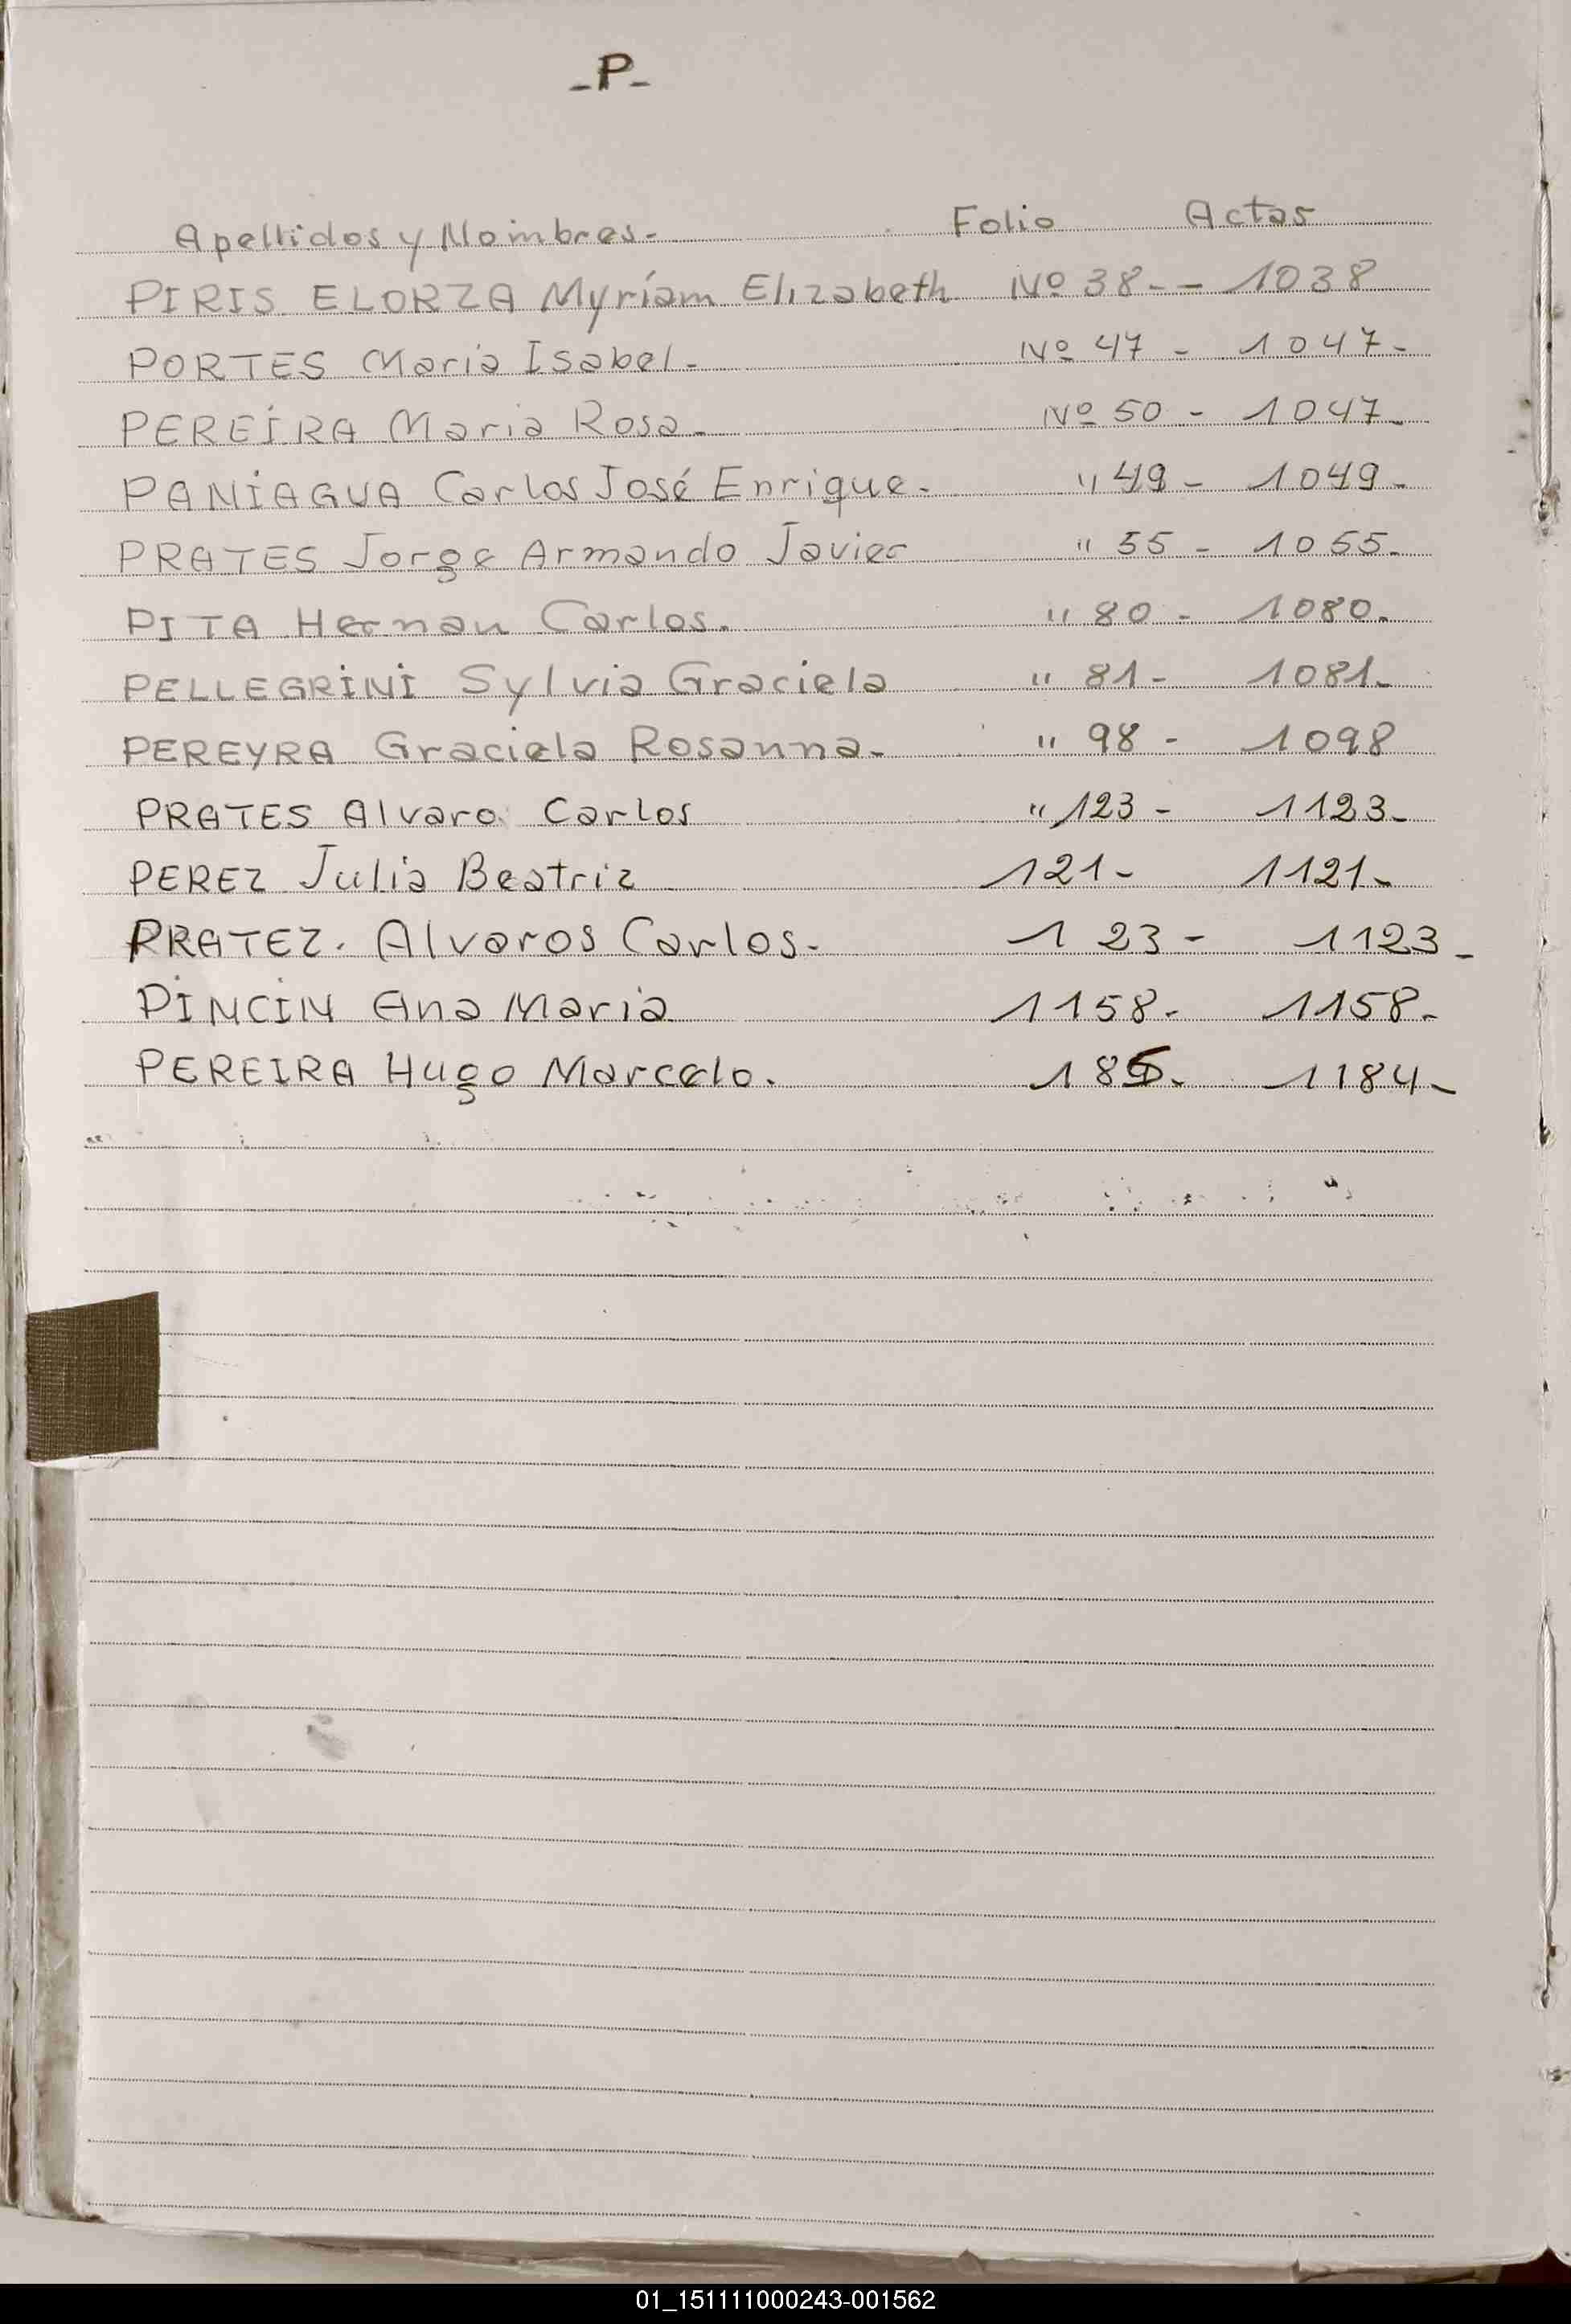 -P-
Apellidos y Nombres.- Folio Actas
PIRIS ELORZA Myríam Elizabeth Nº 38 - - 1038
PORTES Maria Isabel.- Nº 47 - 1047-
PEREIRA Maria Rosa.- Nº 50 - 1047-
PANIAGUA Carlos José Enrique.- " 49 - 1049-
PRATES Jorge Armando Javier " 55 - 1055-
PITA Hernan Carlos. " 80 - 1080-
PELLEGRINI Sylvia Graciela " 81- 1081-
PEREYRA Graciela Rosanna.- " 98 - 1098
PRATES Alvaro Carlos " 123 - 1123-
PEREZ Julia Beatriz 121- 1121-
PRATEZ. Alvaros Carlos.- 123 - 1123-
PINCIN Ana Maria 1158- 1158-
PEREIRA Hugo Marcelo. 185- 1184-
01_151111000243-001562